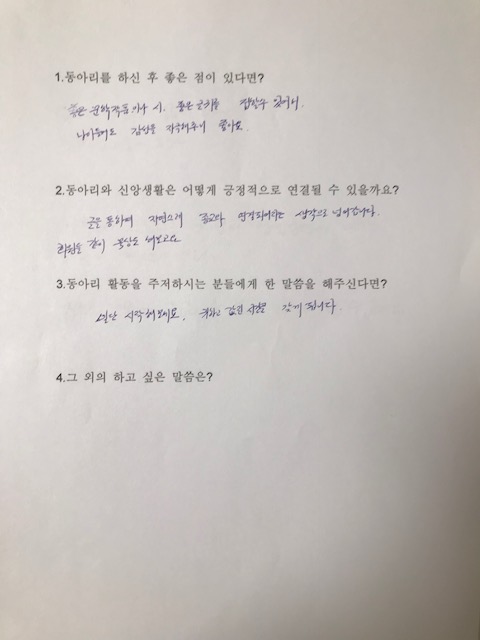 1.동아리를 하신 후 좋은 점이 있다면?
좋은 문학작품이나 시, 좋은 글귀를 접할수 있어서.
나이들어도 감성을 자극해주어 좋아요.
2.동아리와 신앙생활은 어떻게 긍정적으로 연결될 수 있을까요?
글을 통하여 자연스레 종교와 연결되어지는 생각으로 넘어갑니다.
회원들 같이 묵상도 해보고요
3.동아리 활동을 주저하시는 분들에게 한 말씀을 해주신다면?
일단 시작해보세요. 귀하고 값진 시간을 갖게 됩니다.
4.그 외의 하고 싶은 말씀은?